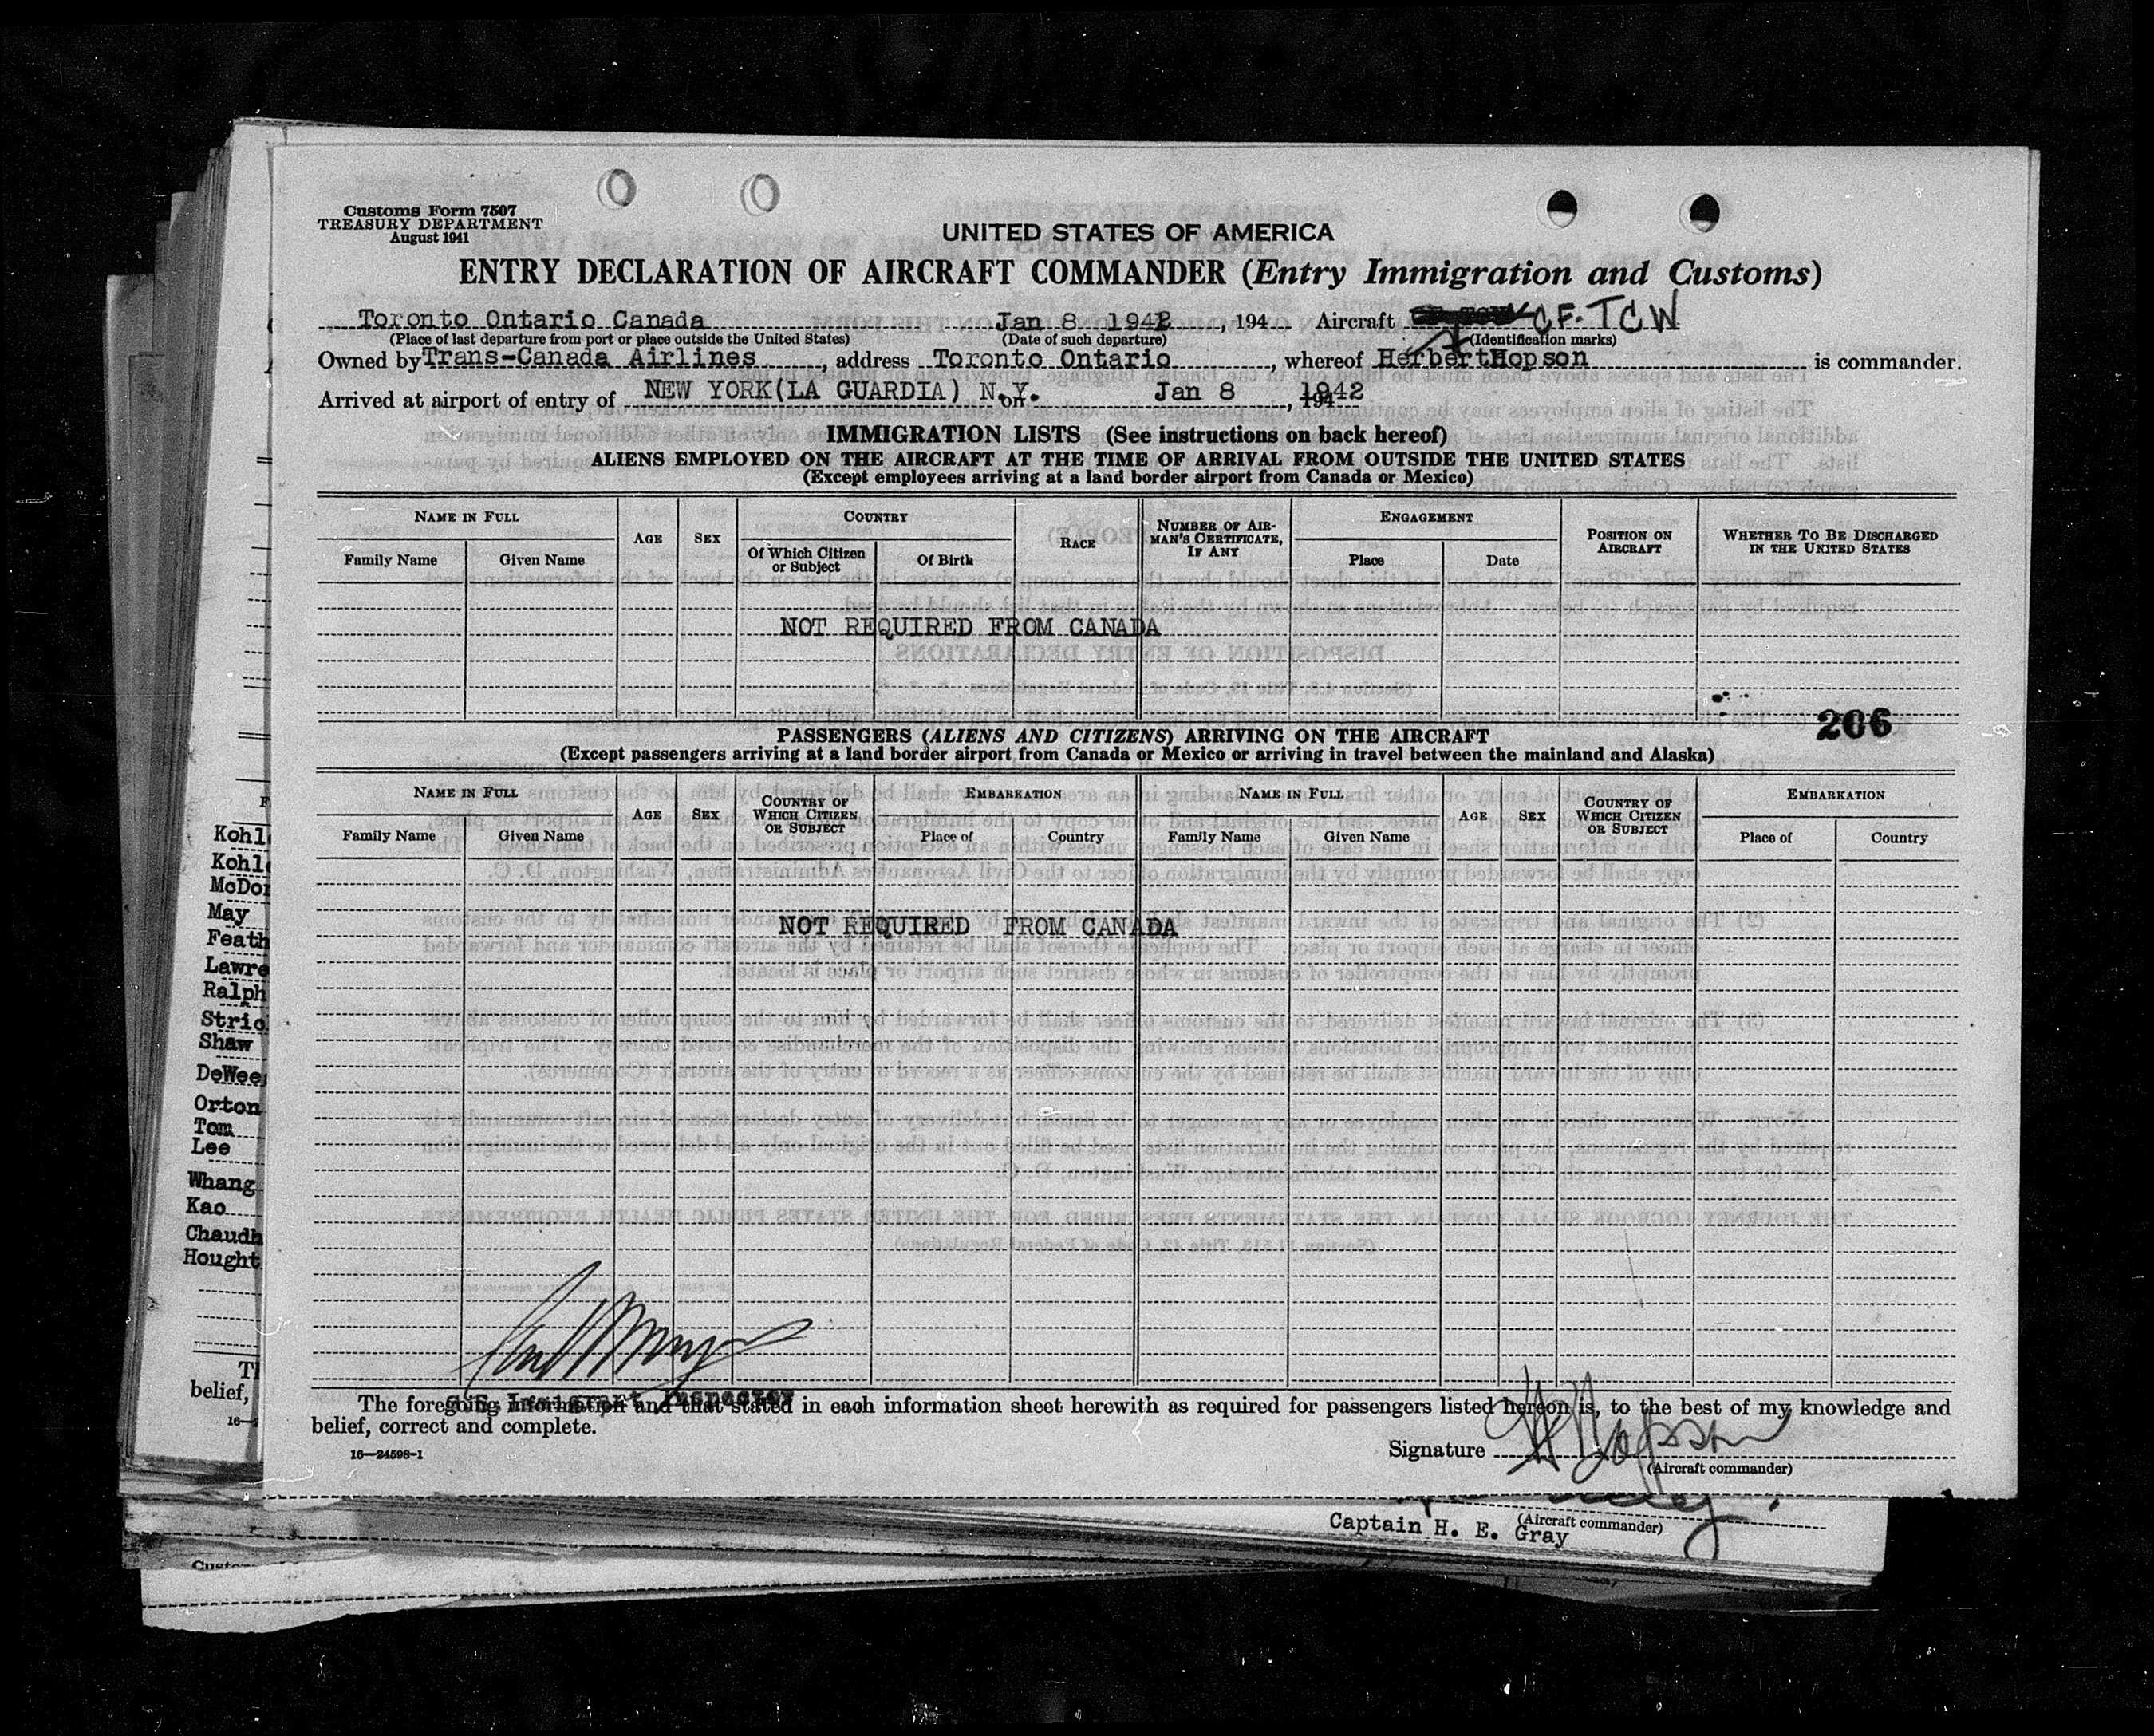 Customs Form 7507
TREASURY DEPARTMENT
August 1941
UNITED STATES OF AMERICA
ENTRY DECLARATION OF AIRCRAFT COMMANDER (Entry Immigration and Customs)
Toronto Ontario Canada Jan 8 1942, 194 Aircraft CF-TCW
(Place of last departure from port or place outside the United States) (Date of such departure) (Identification marks)
Owned by Trans-Canada Airlines, address Toronto Ontario, whereof HerbertHopson is commander.
Arrived at airport of entry of NEW YORK(LA GUARDIA) N.Y. on Jan 8, 1942
IMMIGRATION LISTS (See instructions on back hereof)
ALIENS EMPLOYED ON THE AIRCRAFT AT THE TIME OF ARRIVAL FROM OUTSIDE THE UNITED STATES
(Except employees arriving at a land border airport from Canada or Mexico)
NAME IN FULL AGE SEX COUNTRY RACE NUMBER OF AIRMAN'S CERTIFICATE, IF ANY ENGAGEMENT POSITION ON AIRCRAFT WHETHER TO BE DISCHARGED IN THE UNITED STATES
Family Name Given Name Of Which Citizen or Subject Of Birth Place Date
NOT REQUIRED FROM CANADA
206
PASSENGERS (ALIENS AND CITIZENS) ARRIVING ON THE AIRCRAFT
(Except passengers arriving at a land border airport from Canada or Mexico or arriving in travel between the mainland and Alaska)
NAME IN FULL AGE SEX COUNTRY OF WHICH CITIZEN OR SUBJECT EMBARKATION NAME IN FULL AGE SEX COUNTRY OF WHICH CITIZEN OR SUBJECT EMBARKATION
Family Name Given Name Place of Country Family Name Given Name Place of Country
NOT REQUIRED FROM CANADA
U.S. Immigrant Inspector
The foregoing information and that stated in each information sheet herewith as required for passengers listed hereon is, to the best of my knowledge and
belief, correct and complete.
16—24598-1
Signature H Hopson
(Aircraft commander)
(Aircraft commander)
Captain H. E. Gray
Kohl
Kohl
McDo
May
Feath
Lawre
Ralph
Stric
Shaw
DeWee
Orton
Tom
Lee
Whang
Kao
Chaudh
Hought
belief,
16—